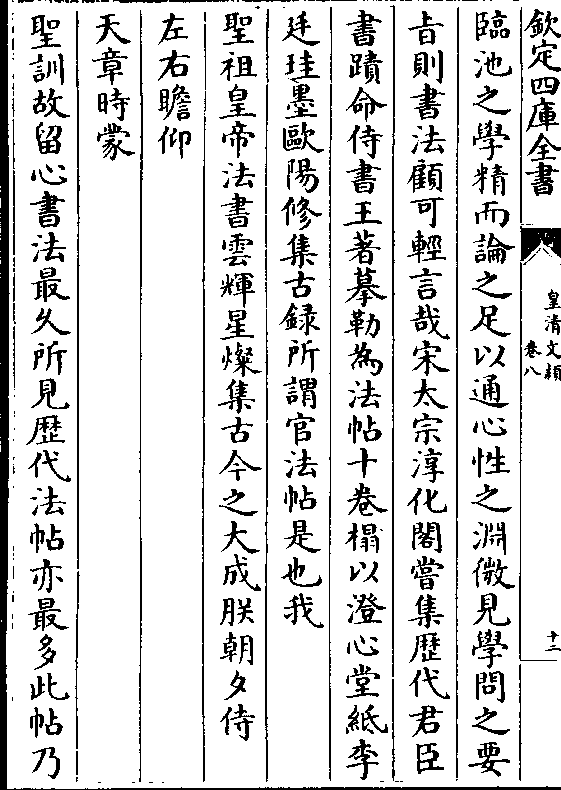 欽定四庫全書
皇清文穎
卷八
十二
臨池之學精而論之足以通心性之淵微見學問之要
旨則書法顧可輕言哉宋太宗淳化閣嘗集歴代君臣
書蹟命侍書王著摹勒為法帖十卷榻以澄心堂紙李
廷珪墨歐陽修集古録所謂官法帖是也我
聖祖皇帝法書雲輝星燦集古今之大成朕朝夕侍
左右瞻仰
天章時蒙
聖訓故留心書法最久所見歴代法帖亦最多此帖乃